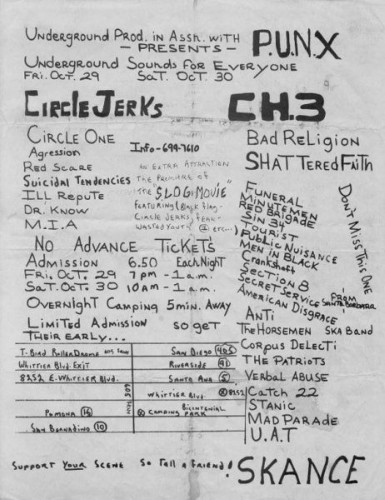 Underground Prod. in Assn. with P.U.N.X
— PRESENTS —
Underground Sounds for Everyone
Fri. Oct. 29 Sat. Oct. 30
CIRCLE JERKS
CIRCLE ONE
Agression
Red Scare
Suicidal Tendencies
ILL Repute
Dr. Know
M.I.A
Info-699-7610
AN EXTRA ATTRACTION
THE PREMIERE OF
THE "SLOG MOVIE"
FEATURING (Black flag-
CIRCLE JERKS, FEAR-
WASTED YOUTH
NO ADVANCE TICKETS
Admission 6.50 Each Night
Fri. Oct. 29 7pm - 1a.m.
Sat. Oct. 30 10am - 1a.m.
Overnight Camping 5min. Away
Limited Admission so get
Their early...
CH.3
Bad Religion
SHATTERED FAITH
FUNERAL
MINUTEMEN
RED BRIGADE
SIN 34
TOURIST
Public Nuisance
MEN IN BLACK
Crankshaft
Section 8
Secret Service
FROM SANTA BARBARA
American Disgrace
ANTi
THE HORSEMEN SKA BAND
Corpus Delecti
THE PATRIOTS
Verbal ABUSE
Catch 22
STANIC
MAD PARADE
U.A.T
SKANCE
DON'T MISS THIS ONE
T-Bird RollerDrome
Whittier Blvd. Exit
8252 E. Whittier Blvd.
Pomona
San Bernadino 10
605
San Diego 405
Riverside 91
Santa Ana 5
Whittier Blvd
Bicentennial
Camping Park
SUPPORT YOUR SCENE So Tell a friend!